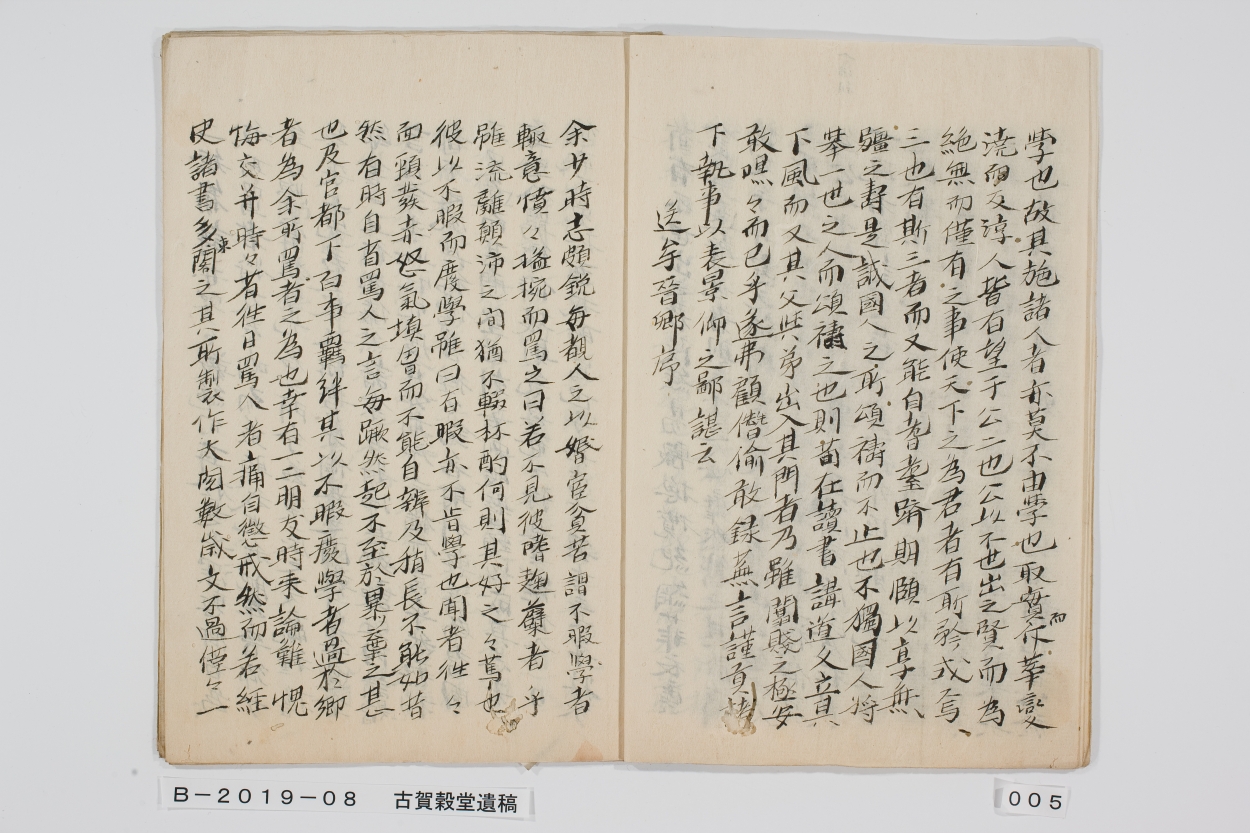 學也故其施諸人者亦莫不由學也取實而斥華變
澆而反淳人皆有望于公二也公以不世出之賢而為
絕無而僅有之事使天下之為君者有所矜式焉
三也有斯三者而又能自耆耋躋期頤以享無
疆之壽是誠國人之所頌禱而不止也不獨國人將
舉一世之人而頌禱之也則苗在讀書講道又立其
下風而又其父與弟出入其門者乃雖闒賤之極安
敢嘿々而已乎遂弗顧僭偷敢錄蕪言謹貢
下執事以表景仰之鄙諶云
送牟晉卿序
余少時志頗銳每觀人之以婚宦貧苦謂不暇學者
輒意憤々搤捥而罵之曰若不見彼嗜麯蘖者乎
雖流離顛沛之间猶不輟杯酌何則其好之々篤也
彼以不暇而廢學雖曰有暇亦不肯學也聞者往々
面頸發赤怒氣填胷而不能自辨及稍長不能如昔
然有時自省罵人之言每蹶然起不至於果棄之甚
也及官都下百事羈絆其以不暇廢學者過於鄉
者為余所罵者之為也幸有一二朋友時来論難愧
悔交并時々若往日罵人者痛自懲戒然而若經
史諸書多東閣之其所製作大率數歲文不過僅々一
B－2019－08　古賀穀堂遺稿
005